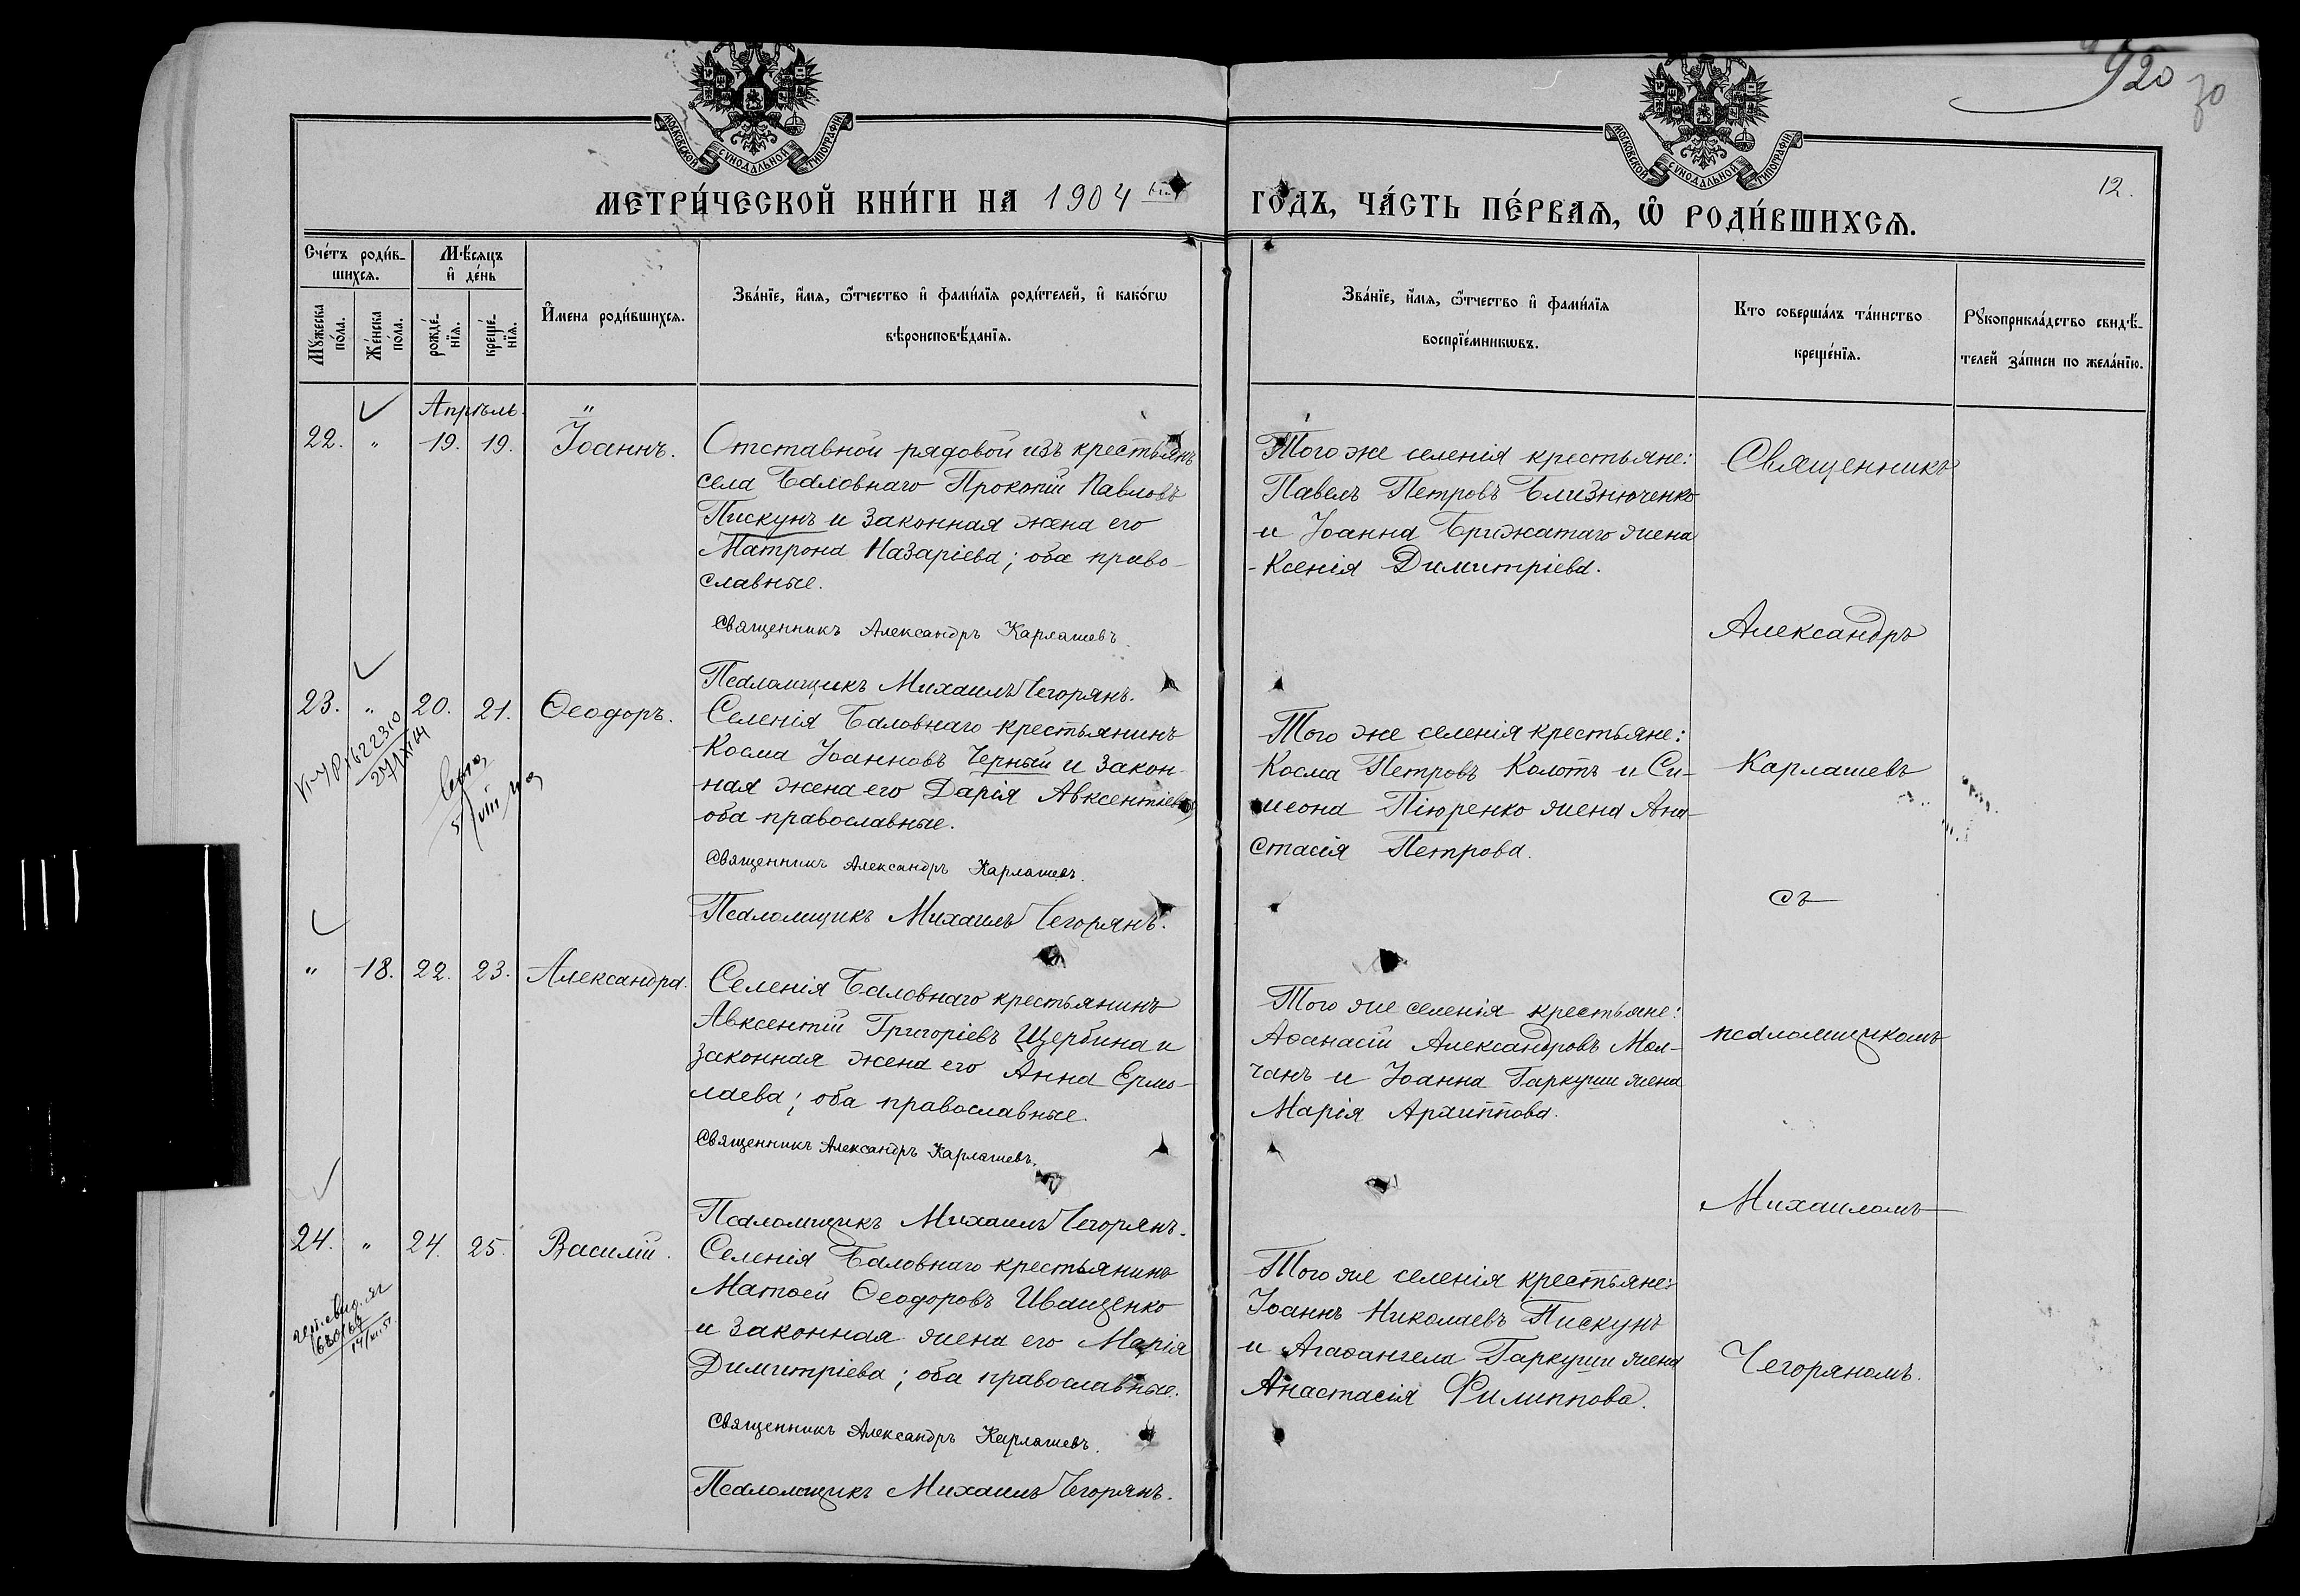 МОСКОВСКОЙ СѴНОДАЛЬНОЙ ТИПОГРАФІИ
МОСКОВСКОЙ СѴНОДАЛЬНОЙ ТИПОГРАФІИ
920
30
12.
МЕТРИ́ЧЕСКОЙ КНИ́ГИ НА 1904
ГОДЪ, ЧА́СТЬ ПЕ́РВАѦ, Ѿ РОДИ́ВШИХСѦ.
Сче́тъ роди́в-
шихсѧ.
Мꙋ́жеска
по́ла.
Же́нска
по́ла.
Мѣ́сѧцъ
и҆ де́нь
рожде́-
нїѧ.
креще́-
нїѧ.
И҆́мена роди́вшихсѧ.
Зва́нїе, и҆́мѧ, ѻ҆́тчество и҆ фами́лїѧ роди́телей, и҆ како́гѡ
вѣроисповѣ́данїѧ.
Зва́нїе, и҆́мѧ, ѻ҆́тчество и҆ фами́лїѧ
воспрїе́мникѡвъ.
Кто соверша́лъ та́инство
креще́нїѧ.
Рꙋкоприкла́дство свидѣ́-
телей за́писи по жела́нїю.
Апрѣль.
22. " 19. 19. Іоаннъ.
Отставной рядовой изъ крестьянъ
села Баловнаго Прокопій Павловъ
Пискунъ и законная жена его
Матрона Назаріева; оба право-
славные.
Священникъ Александръ Карлашевъ.
Псаломщикъ Михаилъ Чегорянъ.
Того же селенія крестьяне:
Павелъ Петровъ Близнюченко
и Іоанна Брижатаго жена
Ксенія Димитріева.
Священникъ
Александръ
23. " 20. 21. Ѳеодоръ.
Селенія Баловнаго крестьянинъ
Косма Іоанновъ Черный и закон-
ная жена его Дарія Авксентіева
оба православные.
Священникъ Александръ Карлашевъ.
Псаломщикъ Михаилъ Чегорянъ.
Того же селенія крестьяне:
Косма Петровъ Колотъ и Си-
меона Пiюренко жена Ана-
стасія Петрова.
Карлашевъ
съ
" 18. 22. 23. Александра.
Селенія Баловнаго крестьянинъ
Авксентій Григоріевъ Щербина и
законная жена его Анна Ермо-
лаева; оба православные.
Священникъ Александръ Карлашевъ.
Псаломщикъ Михаилъ Чегорянъ.
Того же селенія крестьяне:
Аѳанасій Александровъ Мол-
чанъ и Іоанна Гаркуши жена
Марія Архиппова.
псаломщикомъ
Михаиломъ
24. " 24. 25. Василій.
Селенія Баловнаго крестьянинъ
Матѳей Ѳеодоровъ Иващенко
и законная жена его Марія
Димитріева; оба православные.
Священникъ Александръ Карлашевъ.
Псаломщикъ Михаилъ Чегорянъ.
Того же селенія крестьяне:
Іоаннъ Николаевъ Пискунъ
и Агаѳангела Гаркуши жена
Анастасія Филиппова.
Чегоряномъ.